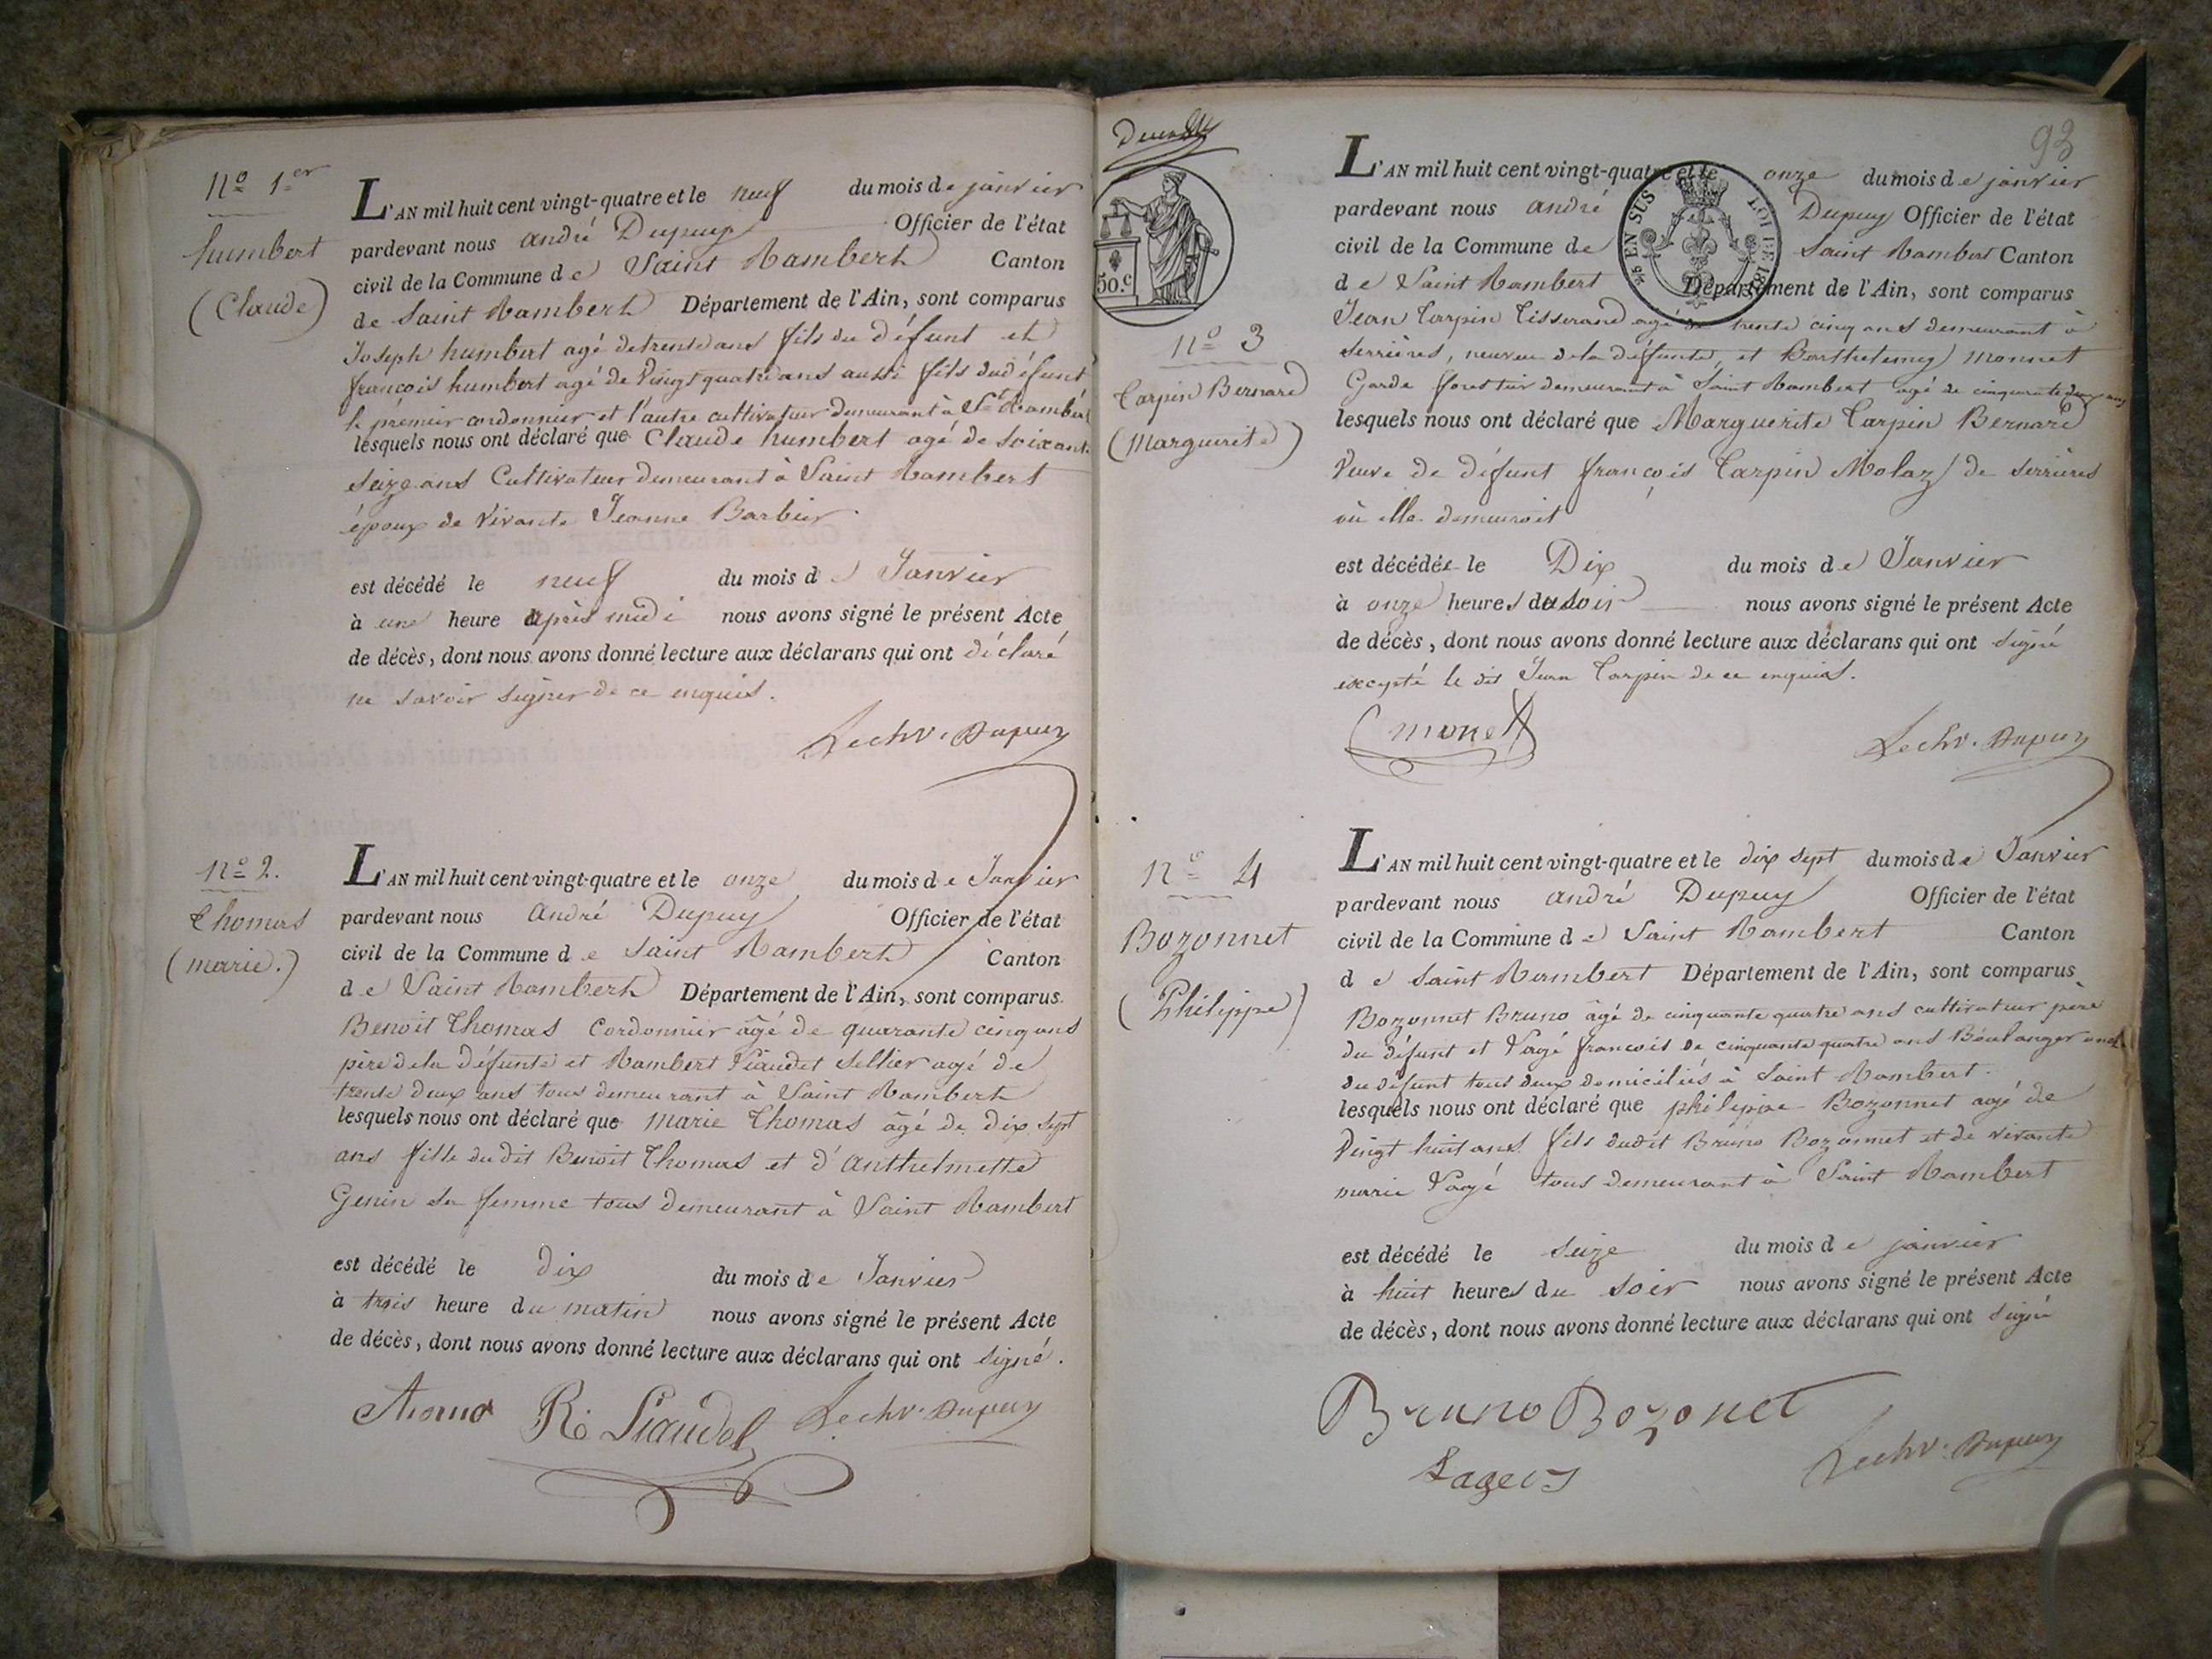 N° 1er
humbert
(Claude)
L'AN mil huit cent vingt-quatre et le neuf du mois de janvier
pardevant nous andré Dupuy Officier de l'état
civil de la Commune de Saint Rambert Canton
de Saint Rambert Département de l'Ain, sont comparus
Joseph humbert agé de trente ans fils du défunt et
françois humbert agé de Vingt quatre ans aussi fils du défunt
le premier cordonnier et l'autre cultivateur demeurant à St Rambert
lesquels nous ont déclaré que Claude humbert agé de soixante
seize ans Cultivateur demeurant à Saint Rambert
époux de vivante Jeanne Barbier
est décédé le neuf du mois de Janvier
à une heure après midi nous avons signé le présent Acte
de décès, dont nous avons donné lecture aux déclarans qui ont déclaré
ne savoir signer de ce enquis.
Lechv. Dupuy
N° 2.
Thomas
(marie.)
L'AN mil huit cent vingt-quatre et le onze du mois de Janvier
pardevant nous André Dupuy Officier de l'état
civil de la Commune de Saint Rambert Canton
de Saint Rambert Département de l'Ain, sont comparus
Benoit Thomas Cordonnier âgé de quarante cinq ans
père de la défunte et Rambert Liaudet sellier agé de
trente deux ans tous demeurant à Saint Rambert
lesquels nous ont déclaré que marie Thomas âgé de dix sept
ans fille du dit Benoit Thomas et d'Anthelmette
Genin sa femme tous demeurant à Saint Rambert
est décédé le dix du mois de Janvier
à trois heure du matin nous avons signé le présent Acte
de décès, dont nous avons donné lecture aux déclarans qui ont signé.
Thomas R. Liaudet Lechv. Dupuy
93
50.c
EN SUS
LOI DE 18
N° 3
Carpin Bernard
(Marguerite)
L'AN mil huit cent vingt-quatre et le onze du mois de janvier
pardevant nous andré Dupuy Officier de l'état
civil de la Commune de Saint Rambert Canton
de Saint Rambert Département de l'Ain, sont comparus
Jean Carpin Tisserand agé de trente cinq ans demeurant à
serrières, neuveu de la défunte, et Barthelemy Monnet
Garde forestier demeurant à Saint Rambert agé de cinquante deux ans
lesquels nous ont déclaré que Marguerite Carpin Bernard
Veuve de défunt françois Carpin Molaz de serrières
où elle demeuroit
est décédée le Dix du mois de Janvier
à onze heures du soir nous avons signé le présent Acte
de décès, dont nous avons donné lecture aux déclarans qui ont signé
excepté le dit Jean Carpin de ce enquis.
monet Lechv. Dupuy
N° 4
Bozonnet
(Philippe)
L'AN mil huit cent vingt-quatre et le dix sept du mois de Janvier
pardevant nous andré Dupuy Officier de l'état
civil de la Commune de Saint Rambert Canton
de Saint Rambert Département de l'Ain, sont comparus
Bozonnet Bruno âgé de cinquante quatre ans cultivateur père
du défunt et françois de cinquante quatre ans Boulanger
du défunt tous deux domiciliés à Saint Rambert.
lesquels nous ont déclaré que philippe Bozonnet agé de
Vingt huit ans fils dudit Bruno Bozonnet et de vivante
marie tous demeurant à Saint Rambert
est décédé le seize du mois de janvier
à huit heures du soir nous avons signé le présent Acte
de décès, dont nous avons donné lecture aux déclarans qui ont signé
Bruno Bozonet
Lechv. Dupuy